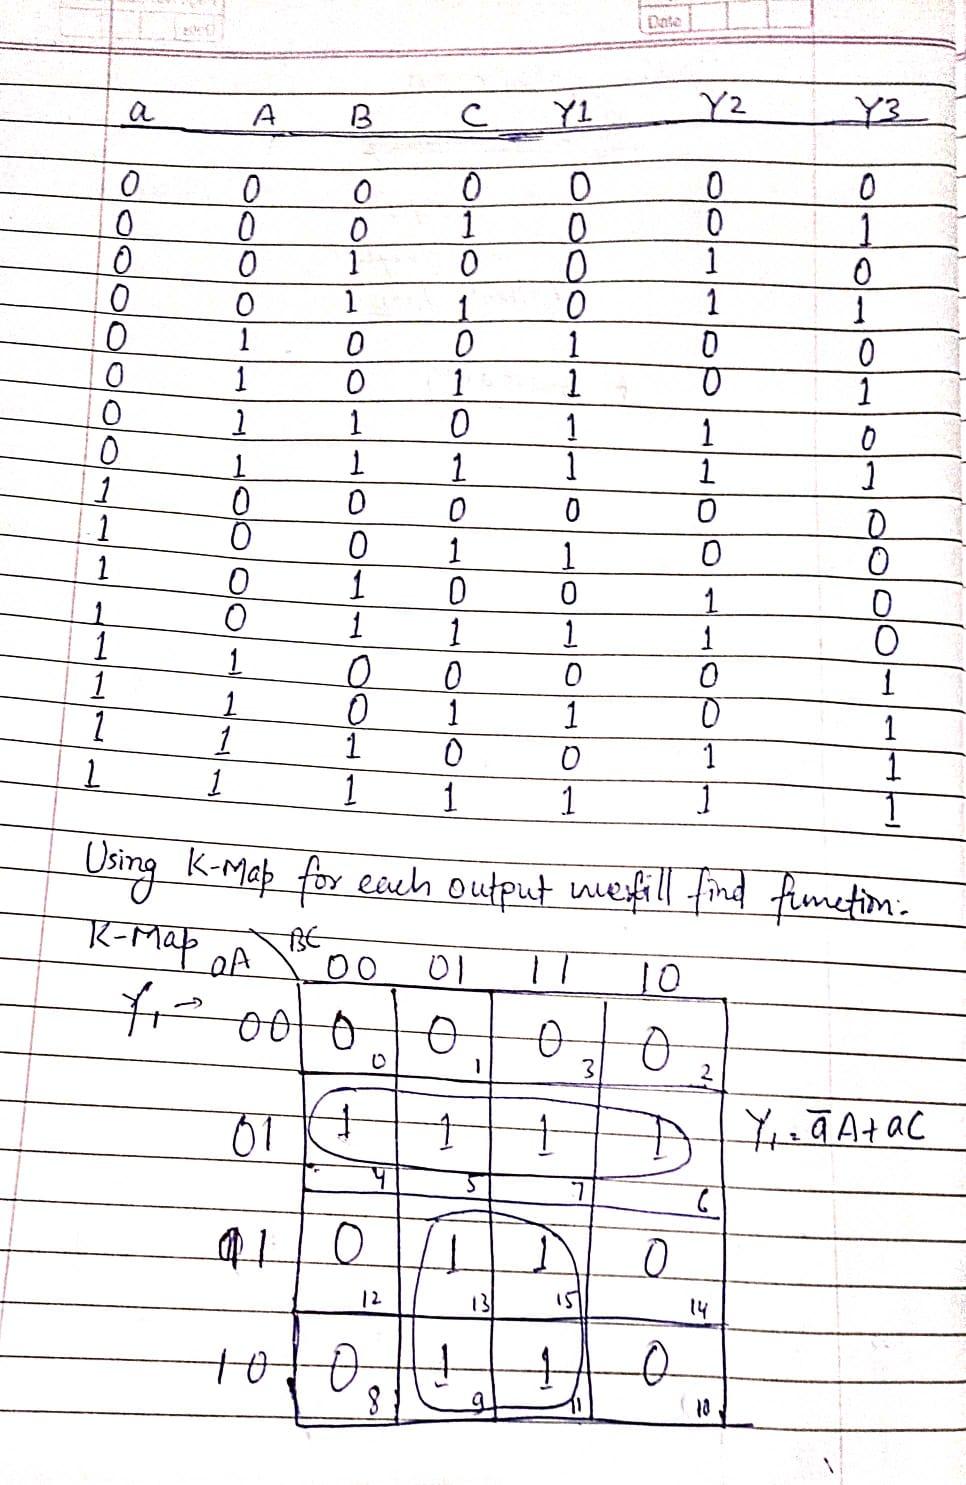 Date
a A B C Y1 Y2 Y3
0 0 0 0 0 0 0
0 0 0 1 0 0 1
0 0 1 0 0 1 0
0 0 1 1 0 1 1
0 1 0 0 1 0 0
0 1 0 1 1 0 1
0 1 1 0 1 1 0
0 1 1 1 1 1 1
1 0 0 0 0 0 0
1 0 0 1 1 0 0
1 0 1 0 0 1 0
1 0 1 1 1 1 0
1 1 0 0 0 0 1
1 1 0 1 1 0 1
1 1 1 0 0 1 1
1 1 1 1 1 1 1
Using K-Map for each output find function:-
K-Map aA BC 00 01 11 10
Y₁ → 00 0 0 0 1 0 3 0 2
01 1 1 1 1 Y₁ = āA + aC
4 5 7 6
11 0 1 1 0
12 13 15 14
10 0 8 1 9 1 11 0 10